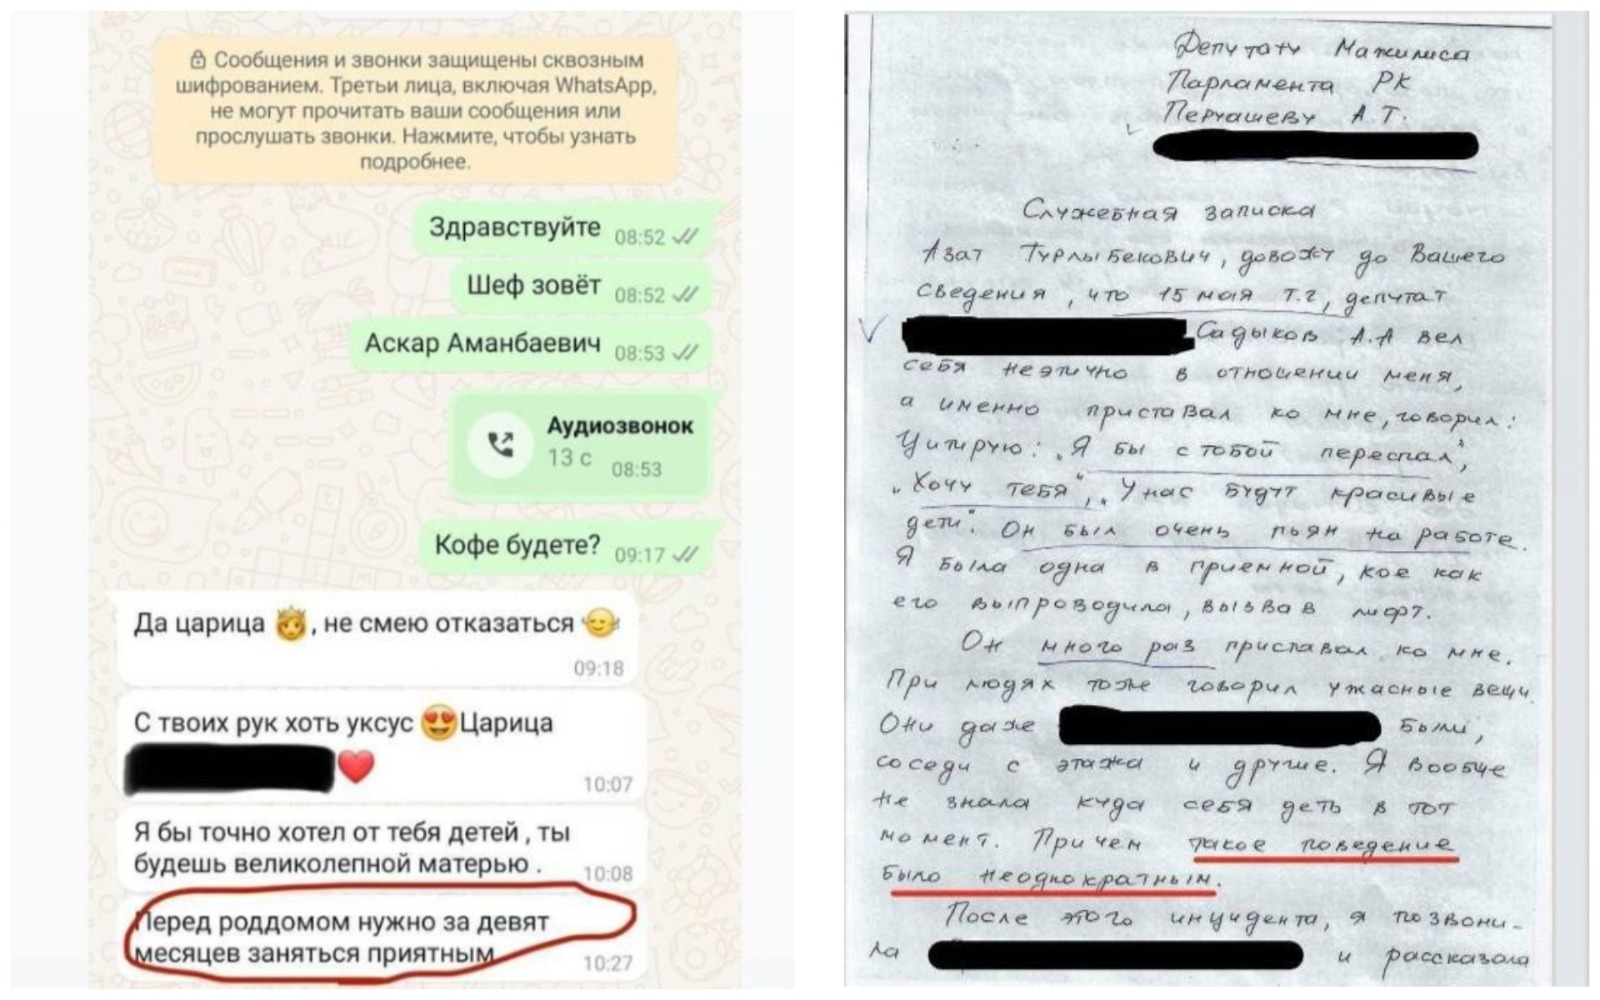 Сообщения и звонки защищены сквозным
шифрованием. Третьи лица, включая WhatsApp,
не могут прочитать ваши сообщения или
прослушать звонки. Нажмите, чтобы узнать
подробнее.
Здравствуйте 08:52
Шеф зовёт 08:52
Аскар Аманбаевич 08:53
Аудиозвонок
13 с 08:53
Кофе будете? 09:17
Да царица 👸, не смею отказаться
09:18
С твоих рук хоть уксус 😍Царица
❤️ 10:07
Я бы точно хотел от тебя детей , ты
будешь великолепной матерью . 10:08
Перед роддомом нужно за девят
месяцев заняться приятным 10:27
Депутату Мажилиса
Парламента РК
Перуашеву А.Т.
Служебная записка
Азат Турлыбекович, довожу до Вашего
сведения, что 15 мая т.г, депутат
Садыков А.А вел
себя неэтично в отношении меня,
а именно приставал ко мне, говорил:
Цитирую: „Я бы с тобой переспал",
„Хочу тебя", „У нас будут красивые
дети". Он был очень пьян на работе.
Я была одна в приемной, кое как
его выпроводила, вызвав лифт.
Он много раз приставал ко мне.
При людях тоже говорил ужасные вещи.
Они даже были,
соседи с этажа и другие. Я вообще
не знала куда себя деть в тот
момент. Причем такое поведение
было неоднократным.
После этого инцидента, я позвони-
ла и рассказала